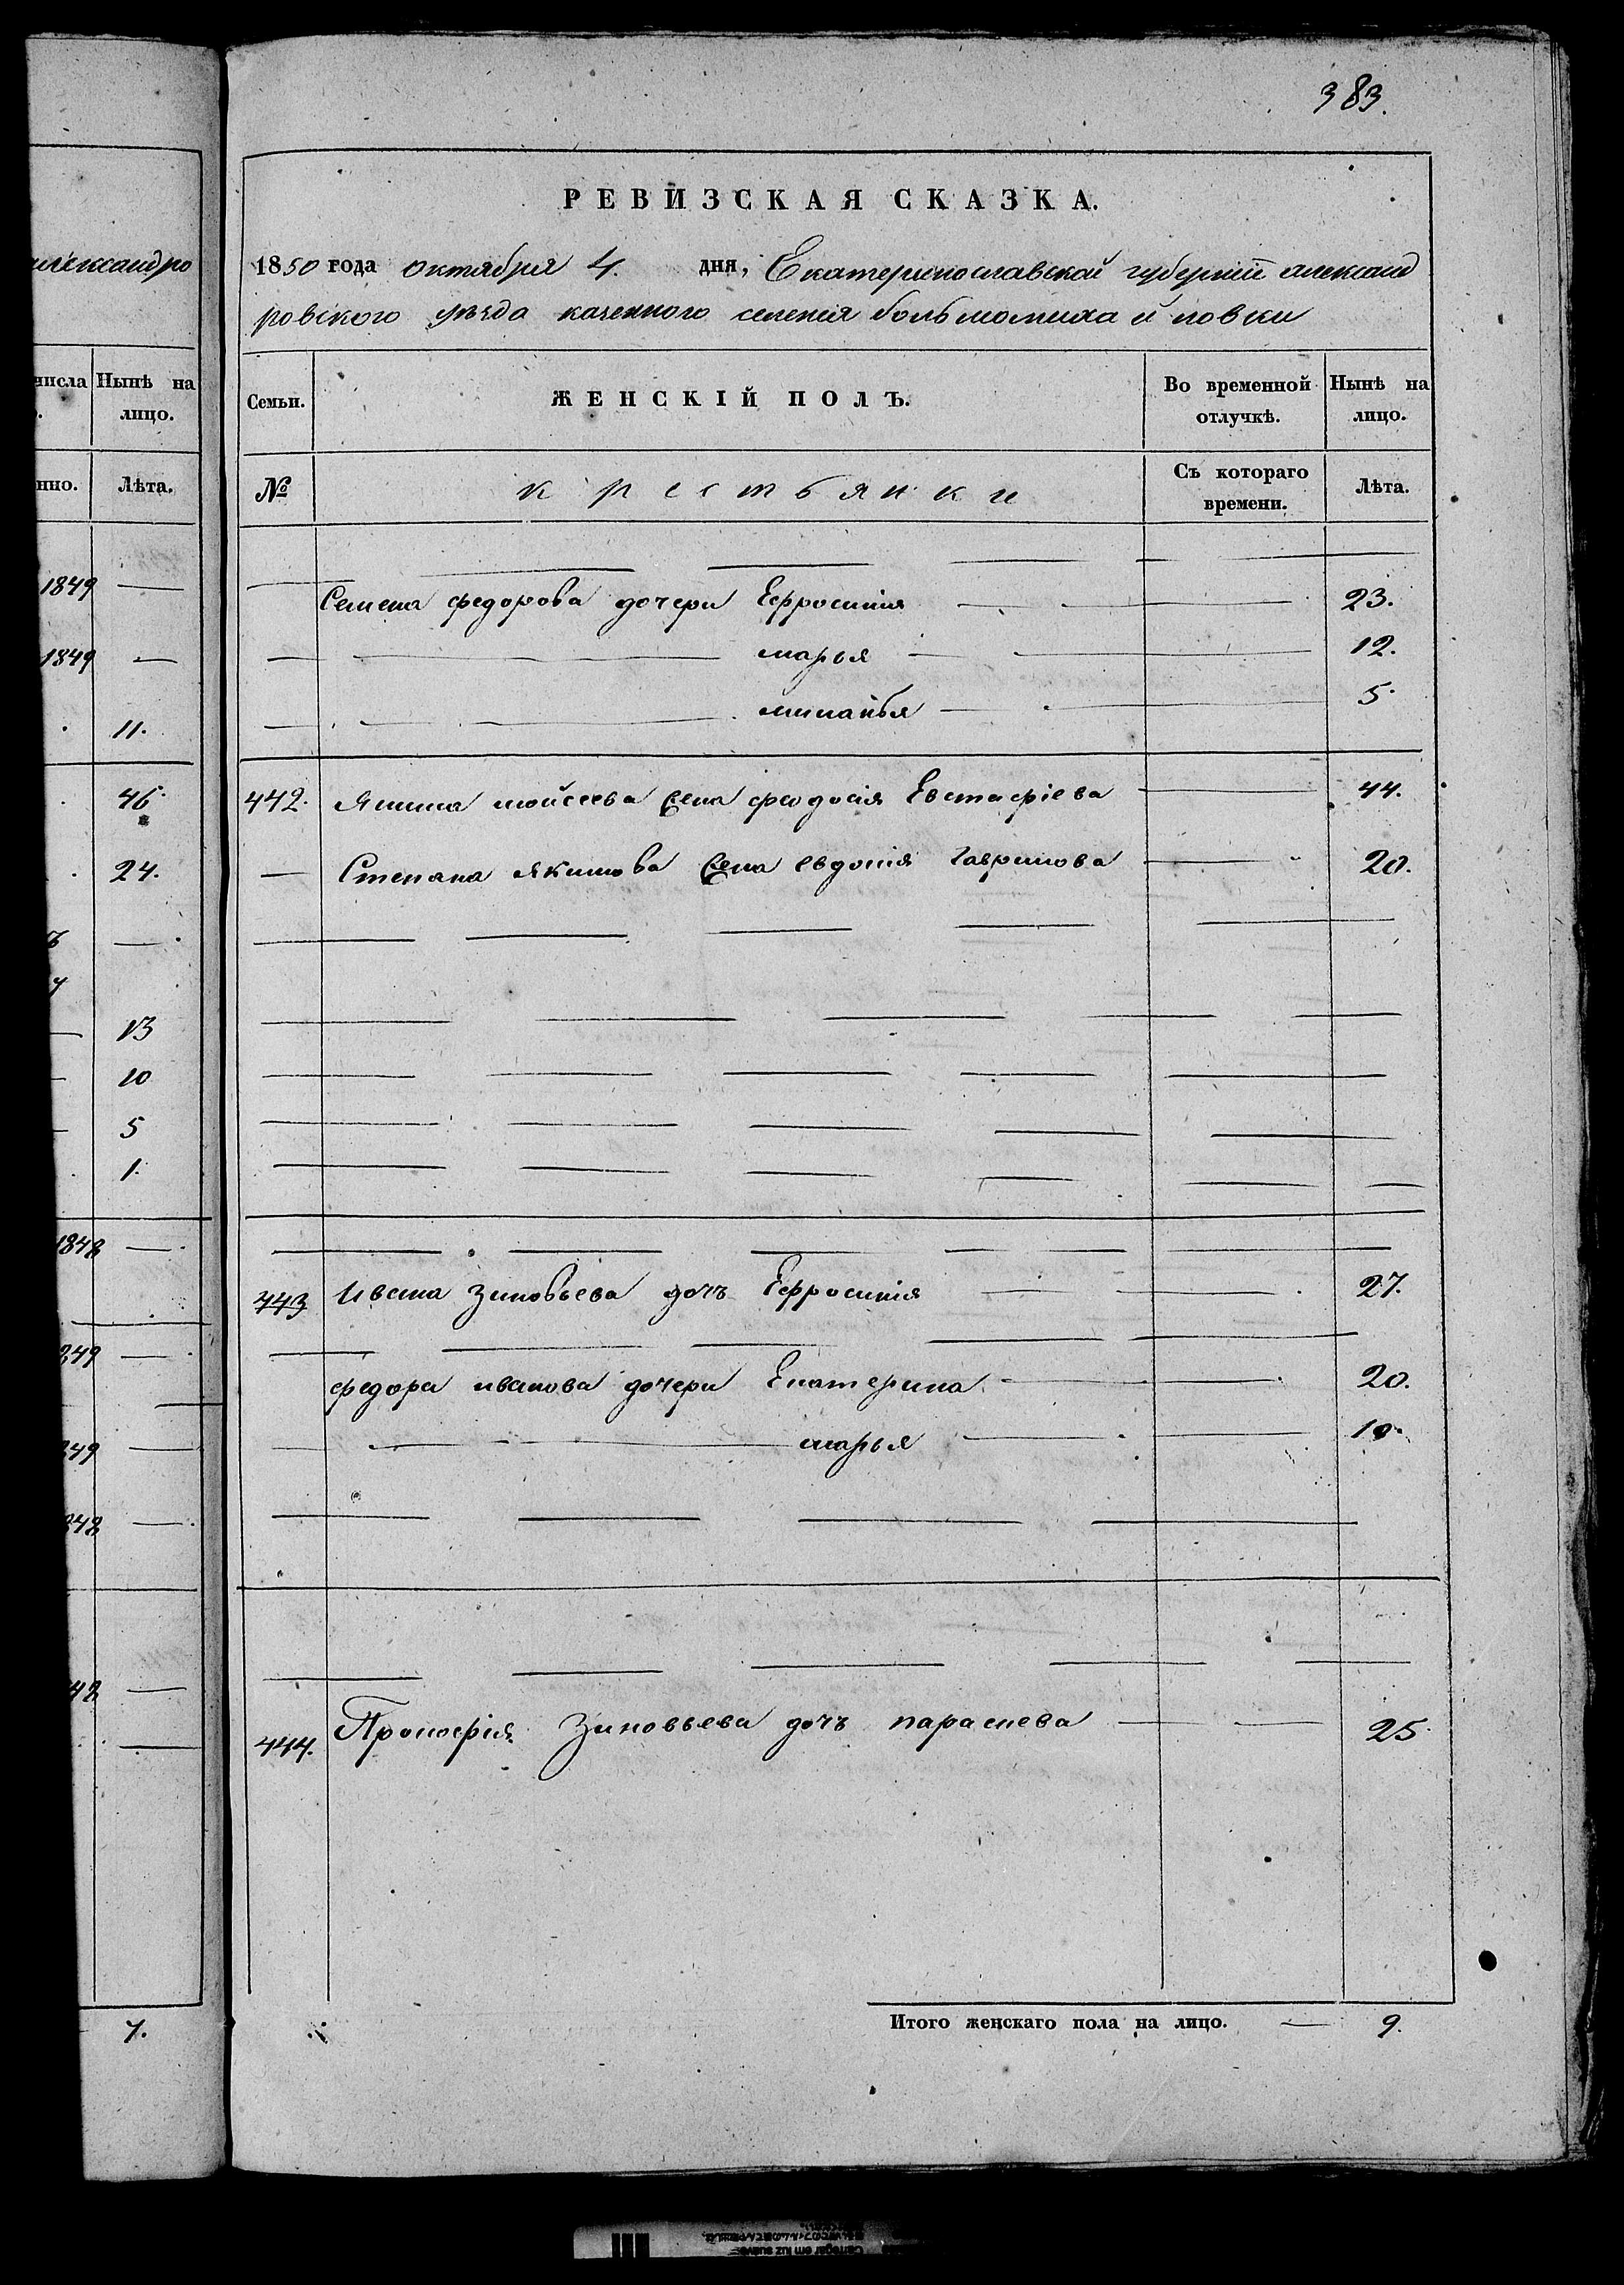 383.
РЕВИЗСКАЯ СКАЗКА.
александро
1850 года октября 4. дня, Екатеринославской губернiи александ
ровского уѣзда казенного селенiя больмомиха й ловки
числа Нынѣ на лицо.
Семьи. ЖЕНСКIЙ ПОЛЪ. Во временной отлучкѣ. Нынѣ на лицо.
нно. Лѣта.
№ крестьянки Съ котораго времени. Лѣта.
1849 —
Семена федорова дочери Ефросинiя 23.
1849 —
марья 12.
11.
5.
46.
442. Якима мойсеева жена феодосiя Евстафiева 44.
24.
Степана якимова жена евдокiя Гаврилова 20.
13
10
5
1.
1848 —
443 Ивана Зиновьева дочь Ефросинiя 27.
249 —
федора иванова дочери Екатерина 20.
249 —
марья 10.
248 —
48 —
444. Прокофiя Зиновьева дочь параскева 25
7.
Итого женскаго пола на лицо. — 9.